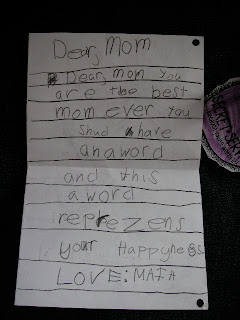 Dear, Mom
Dear, mom you
are the best
mom ever you
shud have
anaword
and this
a word
reprezens
your Happyness
LOVE: MAIA
SECRET SERV